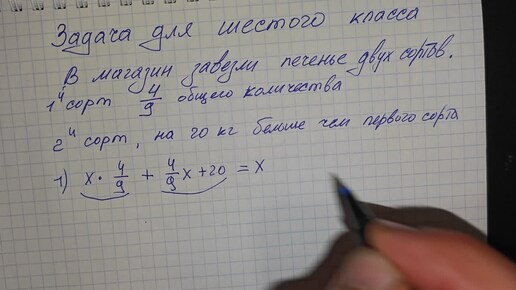 Задача для шестого класса
В магазин завезли печенье двух сортов.
1ч сорт 4/9 общего количества
2ч сорт, на 20 кг больше чем первого сорта
1) x · 4/9 + 4/9 x + 20 = x